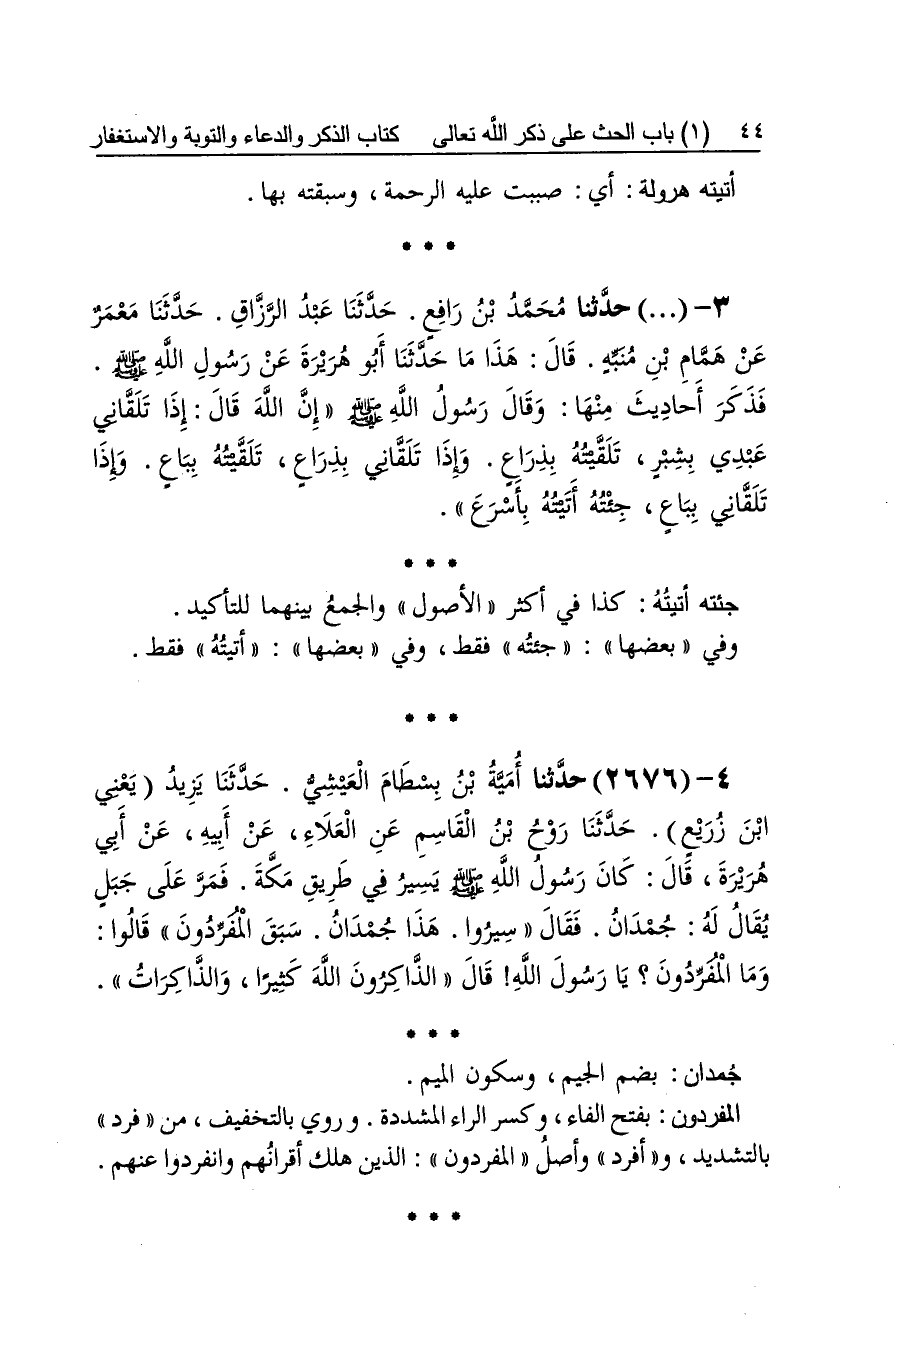 ٤٤ (١) باب الحث على ذكر اللَّه تعالى كتاب الذكر والدعاء والتوبة والاستغفار
أتيته هرولة : أي : صببت عليه الرحمة ، وسبقته بها .
* * *
٣- (...) حدَّثنا مُحَمَّدُ بْنُ رَافِعٍ . حَدَّثَنَا عَبْدُ الرَّزَّاقِ . حَدَّثَنَا مَعْمَرٌ
عَنْ هَمَّامِ بْنِ مُنَبِّهٍ . قَالَ : هَذَا مَا حَدَّثَنَا أَبُو هُرَيْرَةَ عَنْ رَسُولِ اللَّهِ ﷺ .
فَذَكَرَ أَحَادِيثَ مِنْهَا : وَقَالَ رَسُولُ اللَّهِ ﷺ « إِنَّ اللَّهَ قَالَ : إِذَا تَلَقَّانِي
عَبْدِي بِشِبْرٍ ، تَلَقَّيْتُهُ بِذِرَاعٍ . وَإِذَا تَلَقَّانِي بِذِرَاعٍ ، تَلَقَّيْتُهُ بِبَاعٍ . وَإِذَا
تَلَقَّانِي بِبَاعٍ ، جِئْتُهُ أَتَيْتُهُ بِأَسْرَعَ » .
* * *
جئته أتيتُهُ : كذا في أكثر « الأصول » والجمعُ بينهما للتأكيد .
وفي « بعضها » : « جئتُه » فقط ، وفي « بعضها » : « أتيتُهُ » فقط .
* * *
٤- (٢٦٧٦) حدَّثنا أُمَيَّةُ بْنُ بِسْطَامَ الْعَيْشِيُّ . حَدَّثَنَا يَزِيدُ ( يَعْنِي
ابْنَ زُرَيْعٍ ) . حَدَّثَنَا رَوْحُ بْنُ الْقَاسِمِ عَنِ الْعَلَاءِ ، عَنْ أَبِيهِ ، عَنْ أَبِي
هُرَيْرَةَ ، قَالَ : كَانَ رَسُولُ اللَّهِ ﷺ يَسِيرُ فِي طَرِيقِ مَكَّةَ . فَمَرَّ عَلَى جَبَلٍ
يُقَالُ لَهُ : جُمْدَانُ . فَقَالَ « سِيرُوا . هَذَا جُمْدَانُ . سَبَقَ الْمُفَرِّدُونَ » قَالُوا :
وَمَا الْمُفَرِّدُونَ ؟ يَا رَسُولَ اللَّهِ! قَالَ « الذَّاكِرُونَ اللَّهَ كَثِيرًا ، وَالذَّاكِرَاتُ » .
* * *
جُمدان : بضم الجيم ، وسكون الميم .
المفردون : بفتح الفاء ، وكسر الراء المشددة . وروي بالتخفيف ، من « فرد »
بالتشديد ، و« أفرد » وأصلُ « المفردون » : الذين هلك أقرانُهم وانفردوا عنهم .
* * *